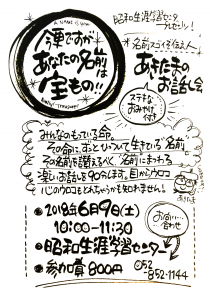 今更ですが
あなたの名前
は
宝もの!!
昭和生涯学習センター
プレゼンツ!
名前スゴイぞ伝道人
あきたまの
お話し会
ステキな
おみやげ
付き
みんなのもっている命。
その命に、ずっとひっついて生きている"名前"
その名前を讃えるべく、名前にまつわる
楽しいお話しを90分します。目からウロコ
心のウロコもとれちゃうかも知れません!
●2018年6月9日(土)
10:00-11:30
●昭和生涯学習センター
●参加費800円
お問い
合わせ
052
852-1144